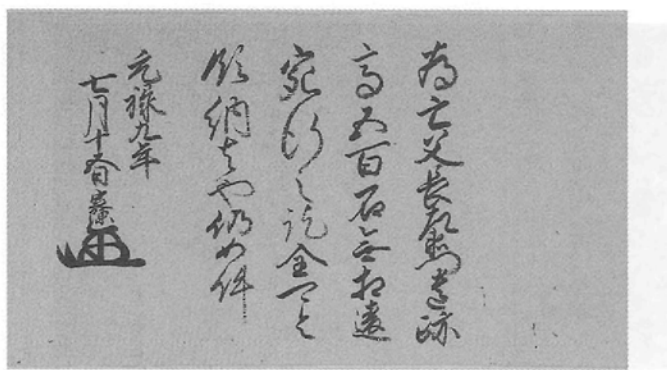 為亡父長左衛門遺跡
高五百石無相違
宛行之訖全可令
領納者也仍如件
元禄九年
七月十五日